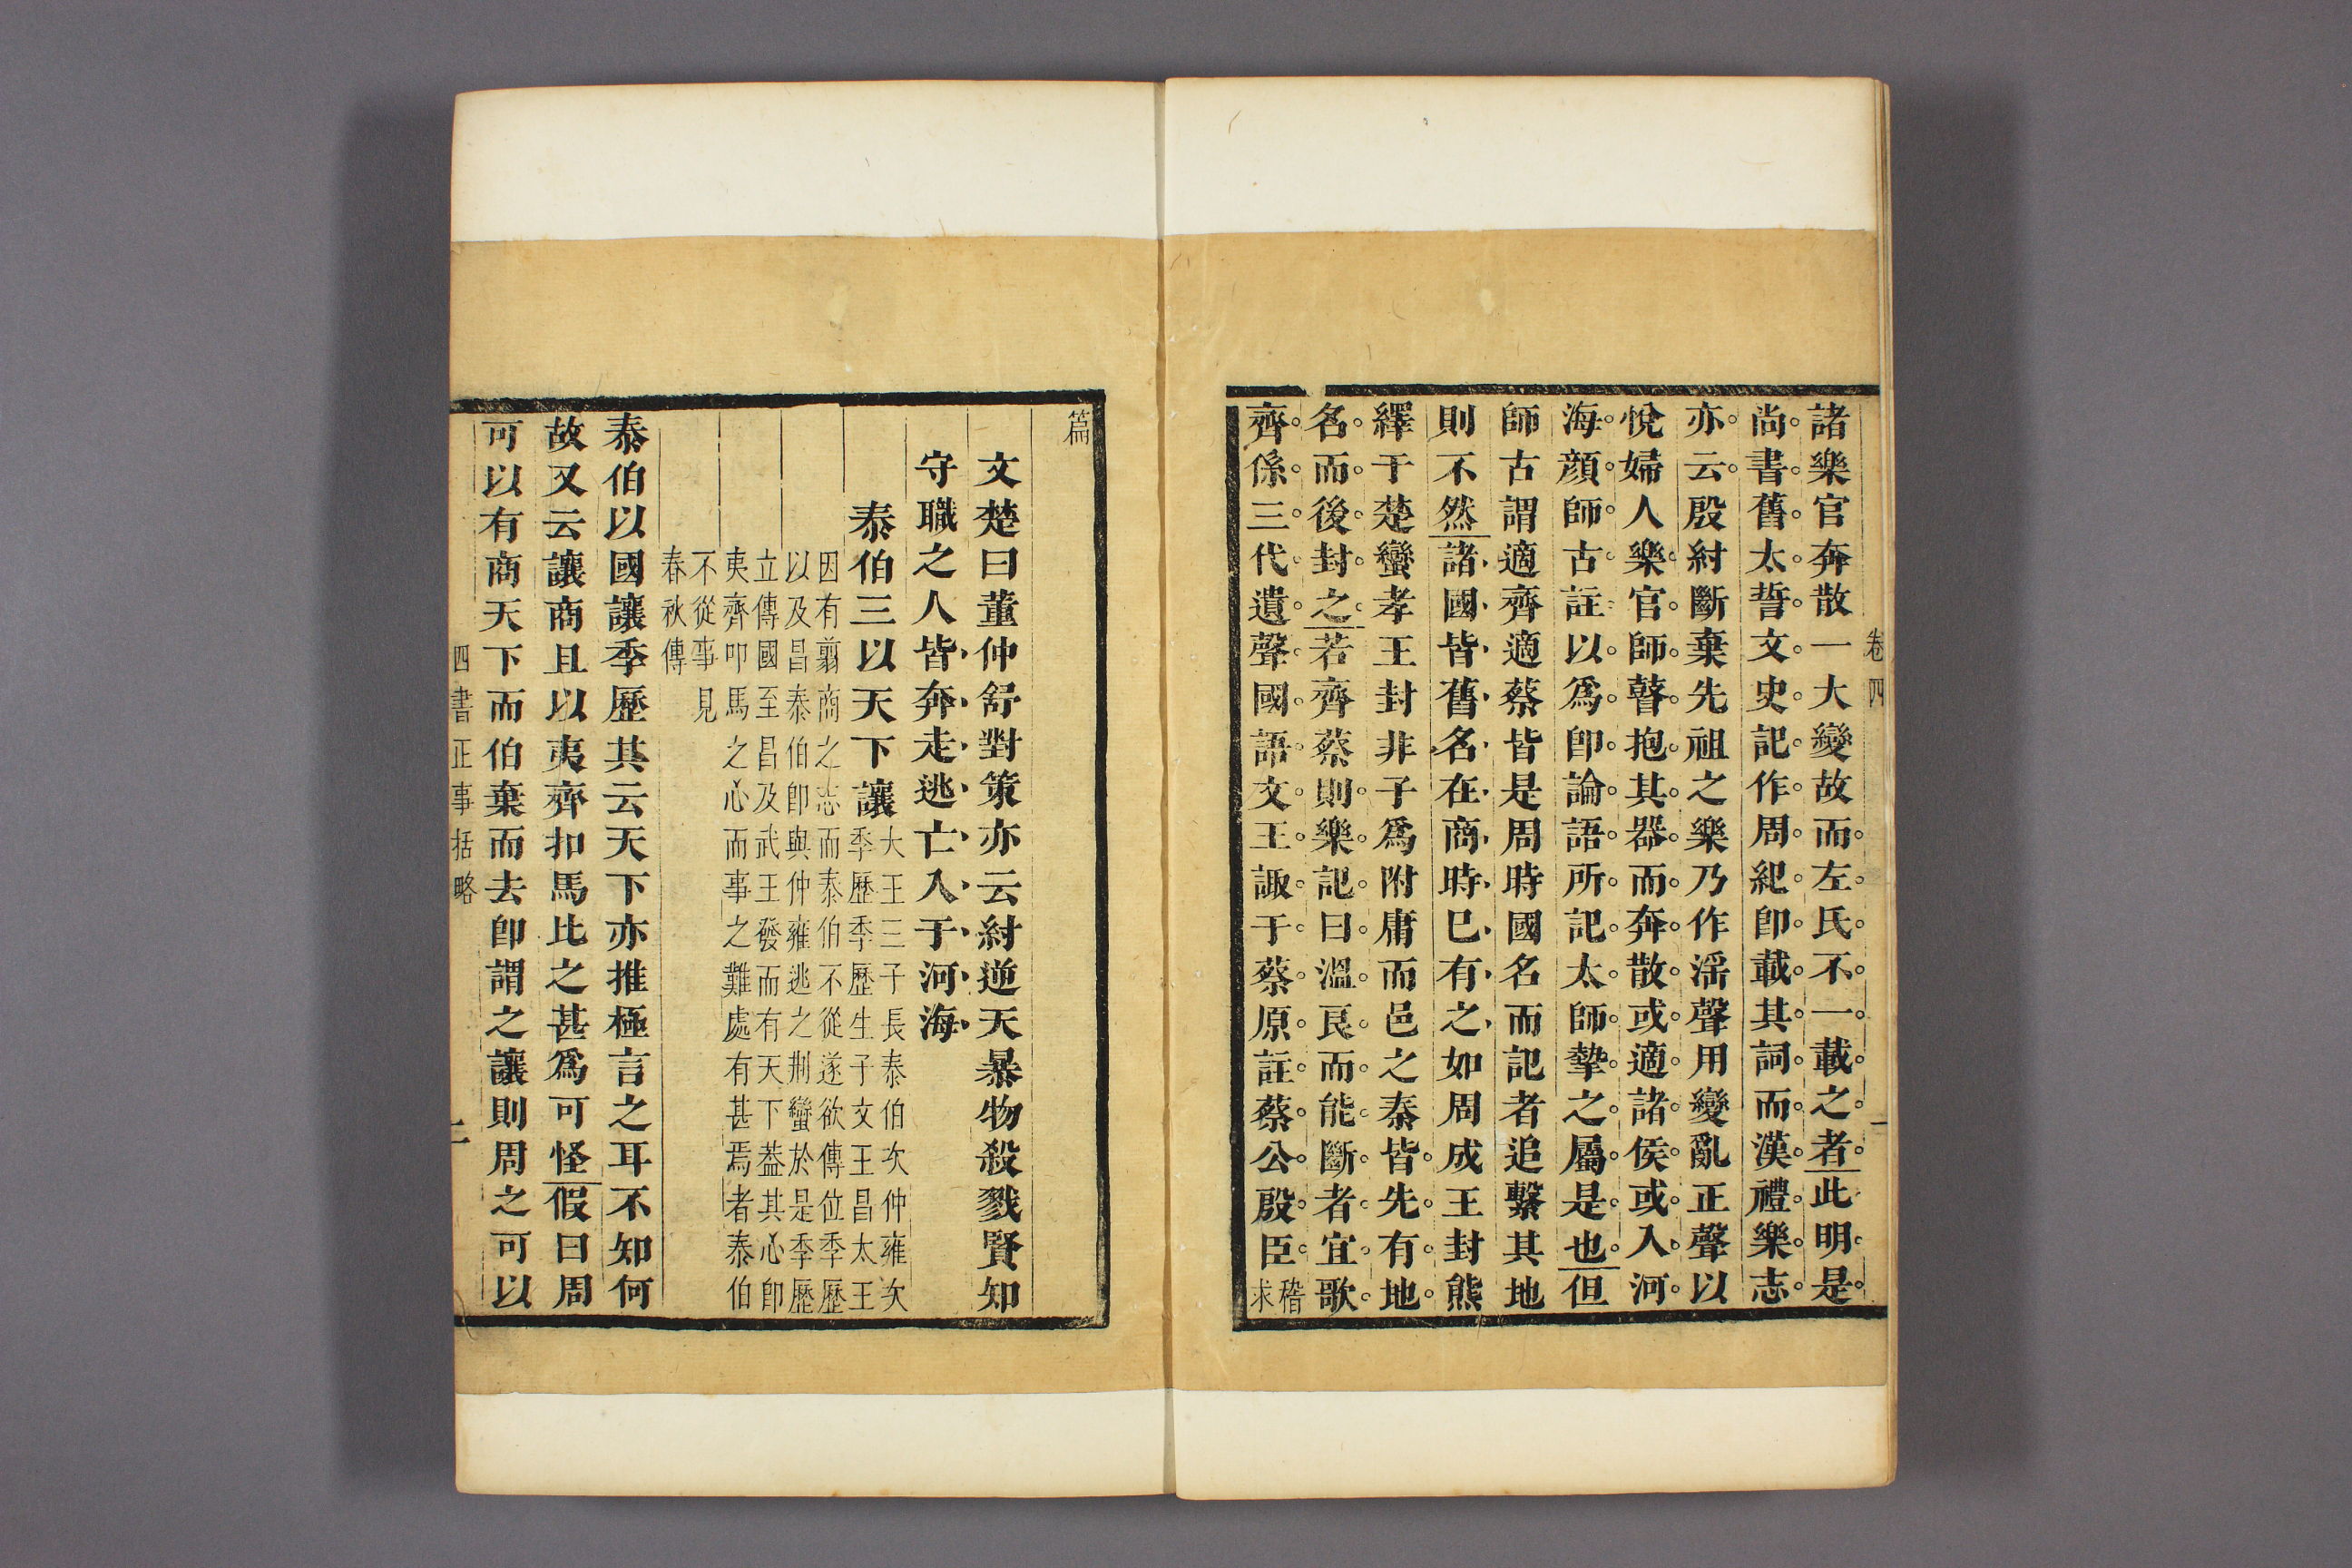 卷四 一
諸樂官奔散一大變故而左氏不一載之者此明是
尚書舊太誓文史記作周紀卽載其詞而漢禮樂志
亦云殷紂斷棄先祖之樂乃作滛聲用變亂正聲以
悅婦人樂官師瞽抱其器而奔散或適諸侯或入河
海顏師古註以爲卽論語所記太師摯之屬是也但
師古謂適齊適蔡皆是周時國名而記者追繫其地
則不然諸國皆舊名在商時已有之如周成王封熊
繹于楚蠻孝王封非子爲附庸而邑之秦皆先有地
名而後封之若齊蔡則樂記曰溫良而能斷者宜歌
齊係三代遺聲國語文王諏于蔡原註蔡公殷臣稽求
篇
文楚曰董仲舒對策亦云紂逆天暴物殺戮賢知
守職之人皆奔走逃亡入于河海
泰伯三以天下讓大王三子長泰伯次仲雍次
季歷季歷生子文王昌太王
因有翦商之志而泰伯不從遂欲傳位季歷
以及昌泰伯卽與仲雍逃之荆蠻於是季歷
立傳國至昌及武王發而有天下葢其心卽
夷齊叩馬之心而事之難處有甚焉者泰伯
不從事見
春秋傳
泰伯以國讓季歷其云天下亦推極言之耳不知何
故又云讓商且以夷齊扣馬比之甚爲可怪假曰周
可以有商天下而伯棄而去卽謂之讓則周之可以
四書正事括略